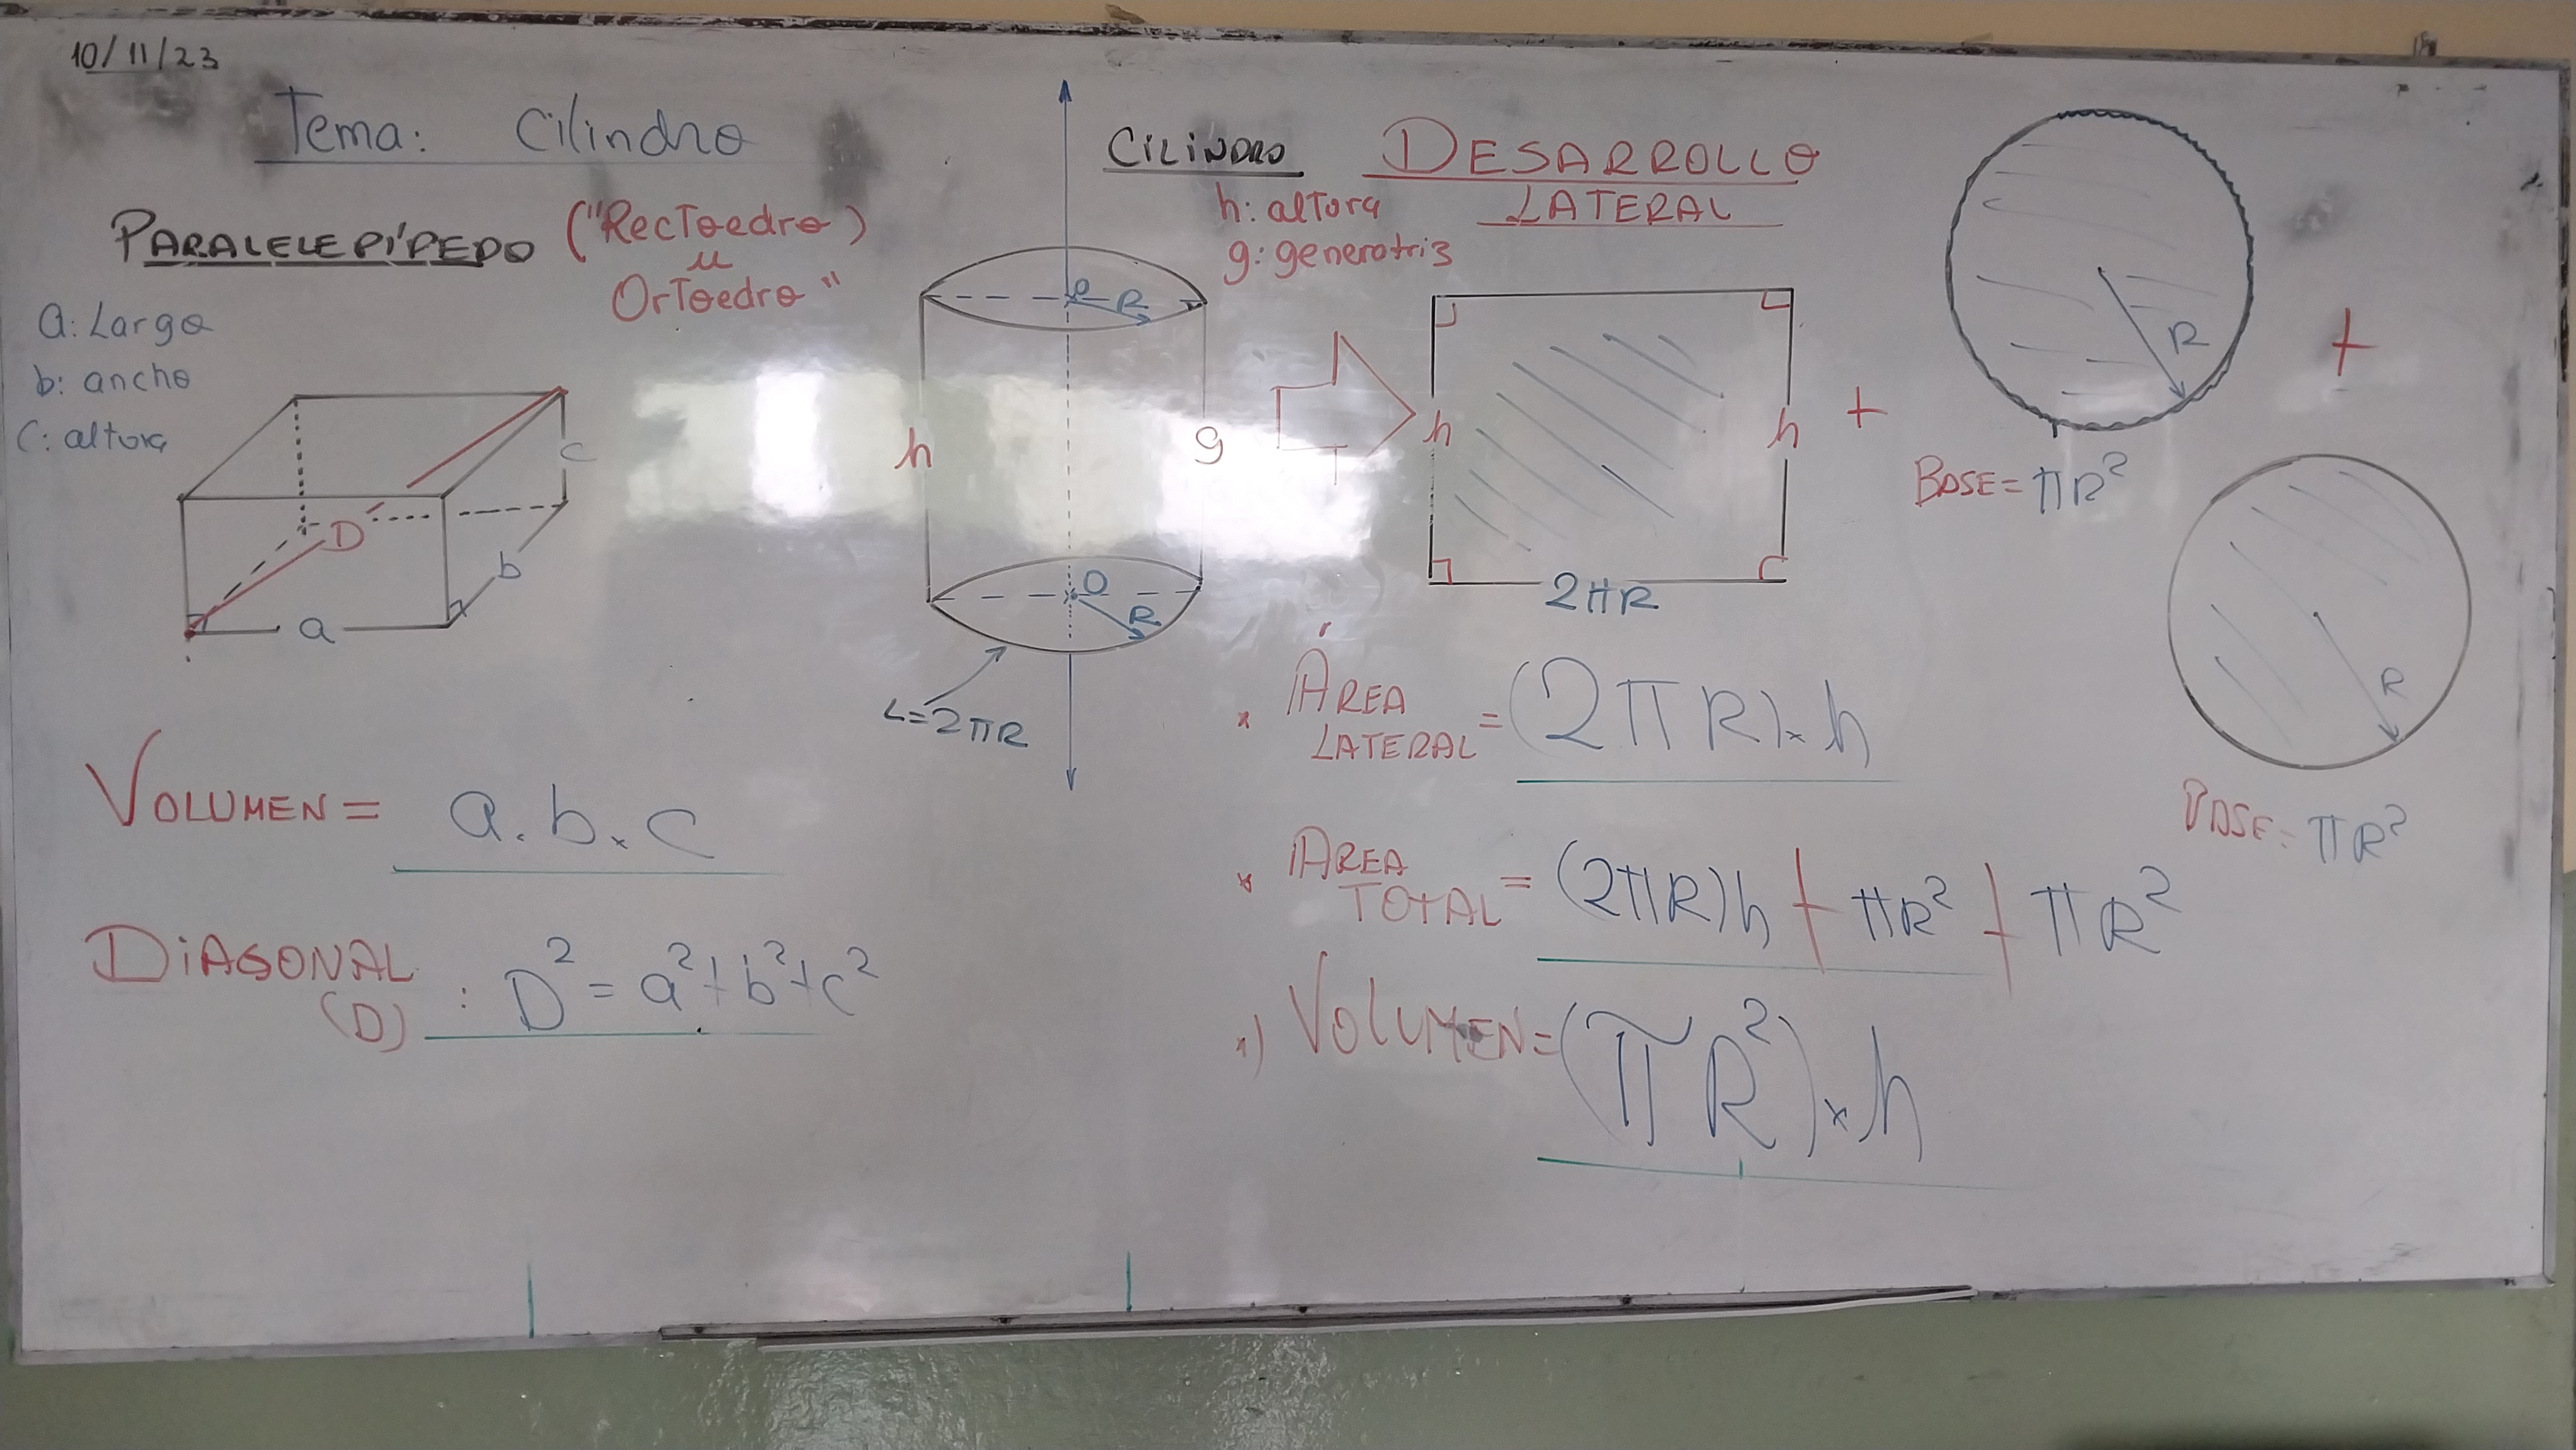 10/11/23
Tema: Cilindro
PARALELEPÍPEDO ("Rectoedro)
u
Ortoedro"
a: Largo
b: ancho
C: altura
c
D
b
a
VOLUMEN = a.b.c
DIAGONAL
(D) : D² = a²+b²+c²
CILINDRO
h: altura
g: generatriz
O R
h
g
O
R
L=2πR
DESARROLLO
LATERAL
h
h
2πR
+
R
+
BASE = πR²
R
BASE = πR²
* ÁREA
LATERAL = (2πR)×h
* ÁREA
TOTAL = (2πR)h + πR² + πR²
*) VOLUMEN = (πR²)×h